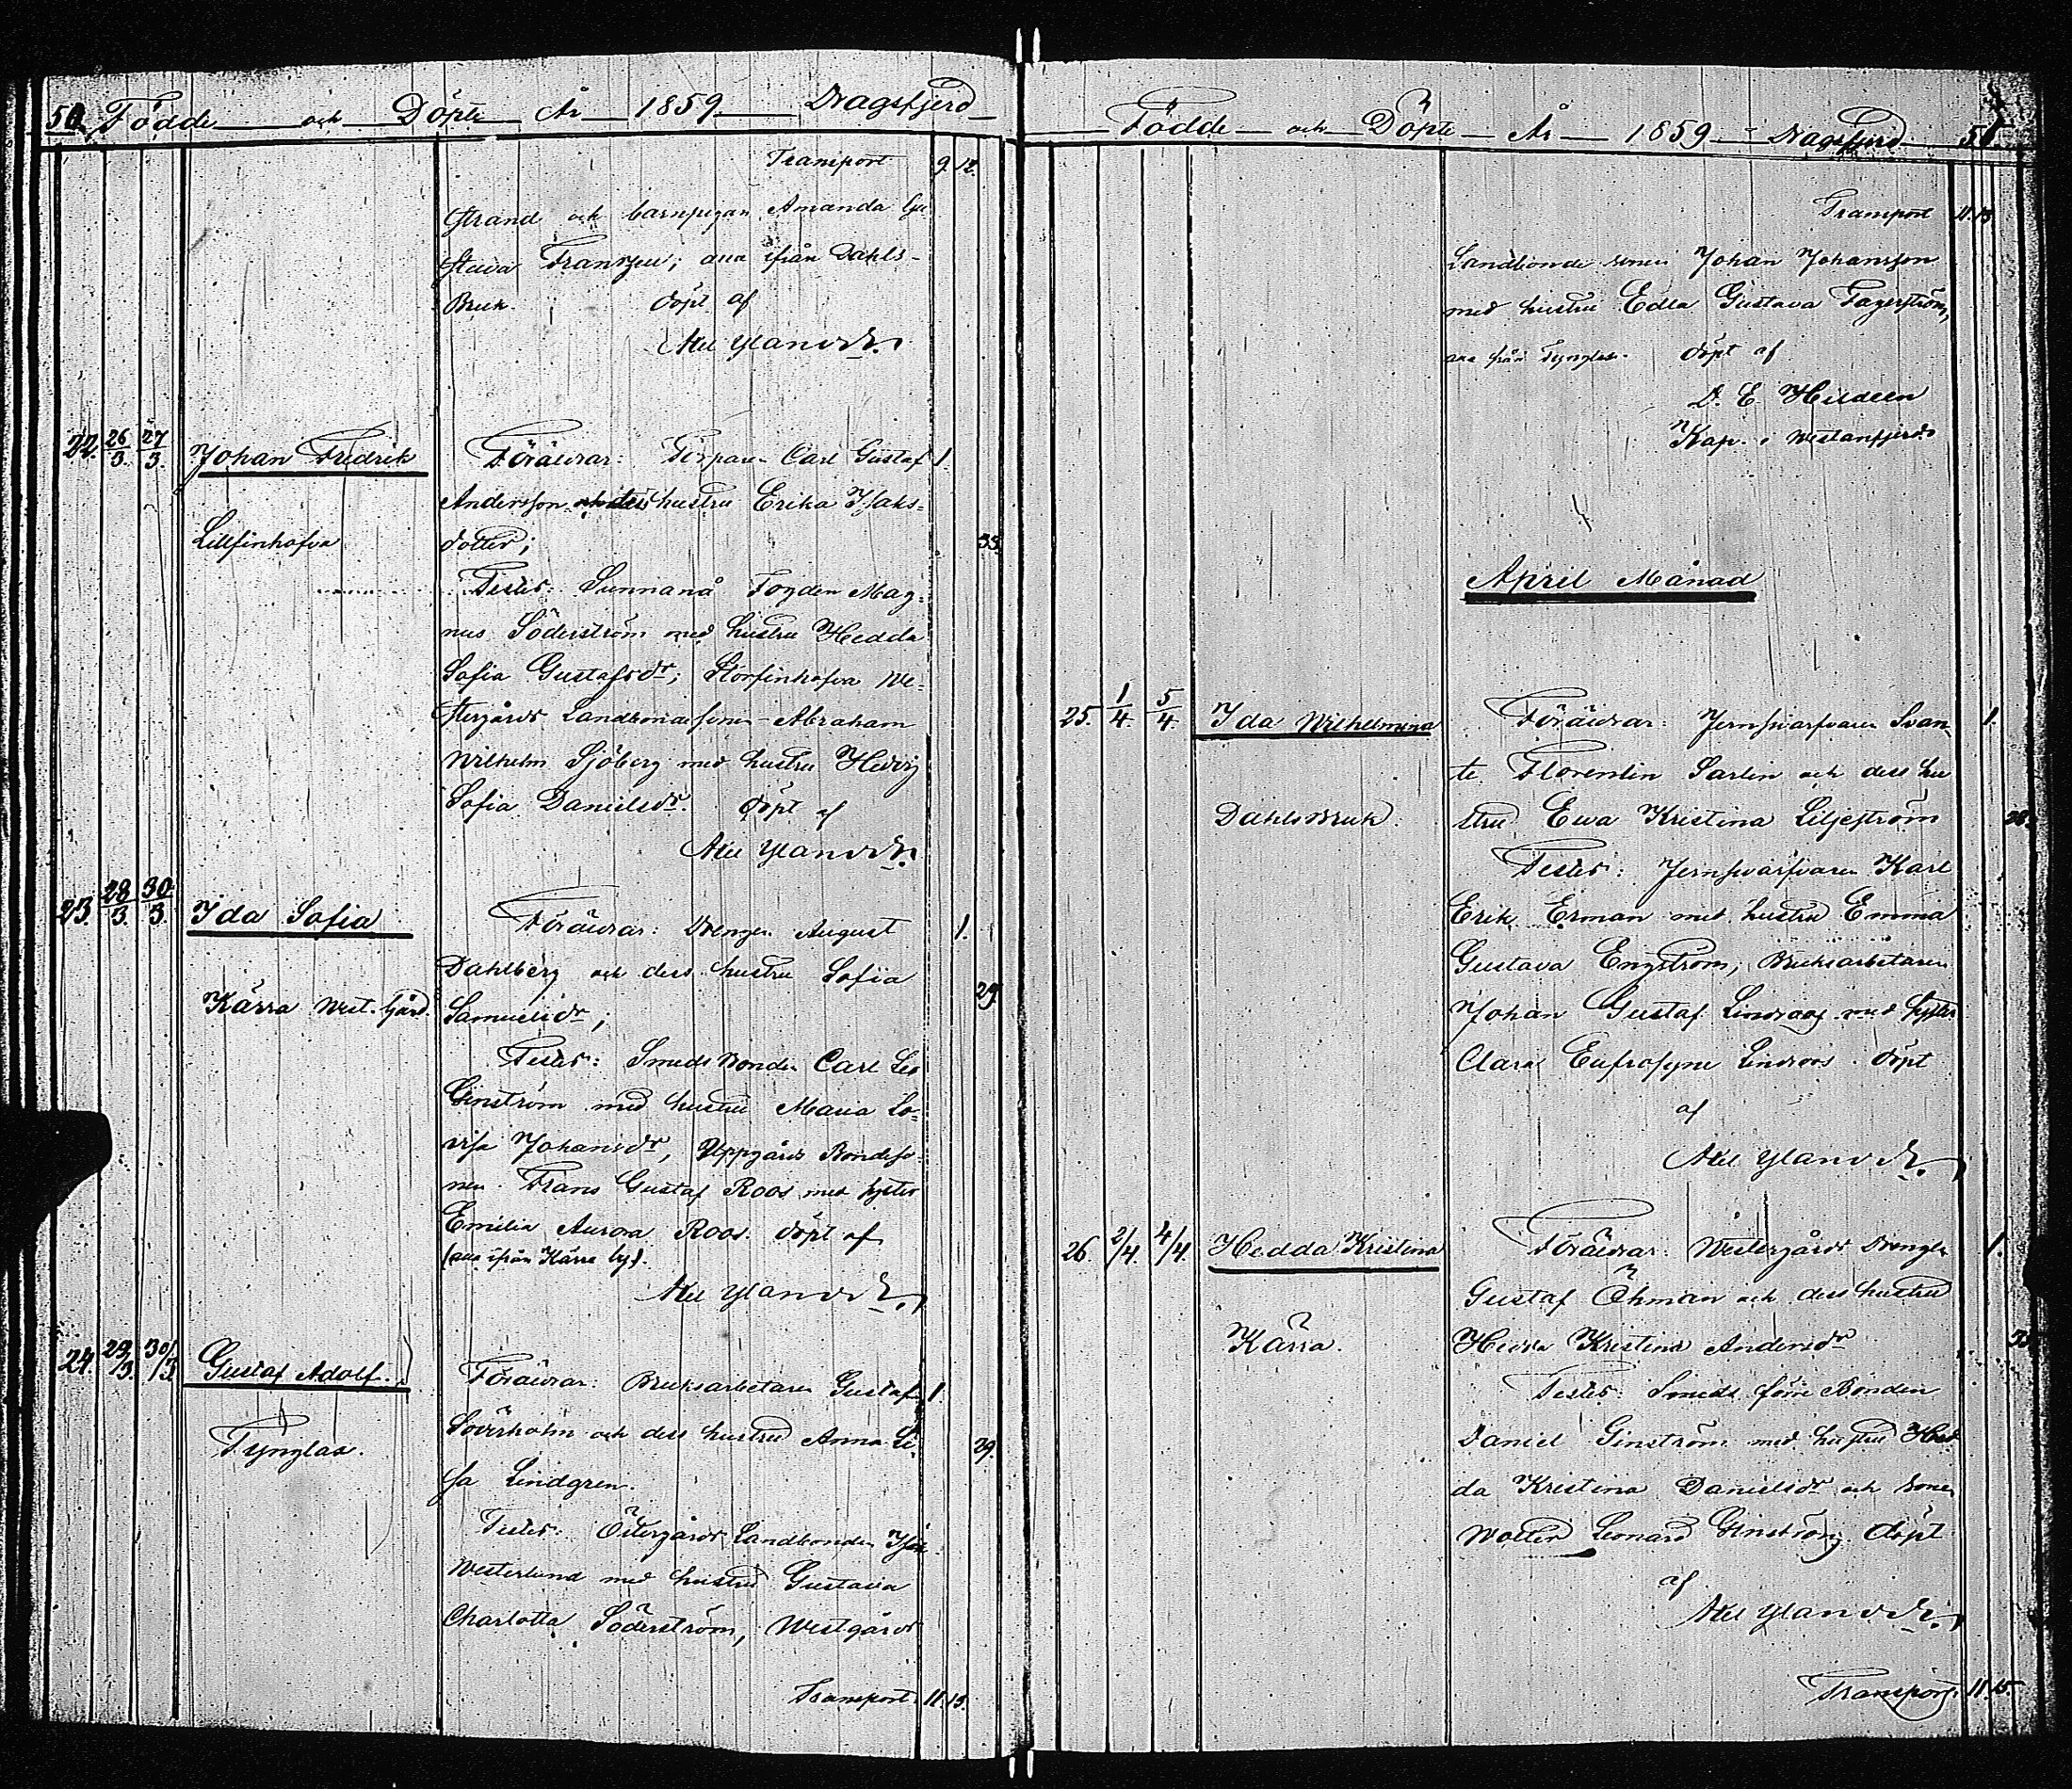 50. Födde och Döpte År 1859 Dragsfjerd
Transport 9. 12.
strand och barnpigan Amanda Gu
stava Franssu; alla ifrån Dahls-
Bruk. döpt af
Axel Yland
22. 26/3. 27/3. Johan Fredrik Föräldrar: Torparen Carl Gustaf 1.
Andersson och dess hustru Erika Isaks-
Lillfinhofva dotter; 33.
Testes: Sunnanå Fogden Mag-
nus Söderström med hustru Hedda
Sofia Gustafsdr; Storfinhofva We-
stergårds Landbondesonen Abraham
Wilhelm Sjöberg med hustru Hedvig
Sofia Danielsdr. döpt af
Axel Yland
23. 28/3. 30/3. Ida Sofia Föräldrar: Drengen August 1.
Dahlberg och dess hustru Sofia
Kärra West. Gård. Samuelsdr; 29.
Testes: Smeds Bonden Carl Leo
Ginström med hustru Maria Lo-
visa Johansdr, Uppgårds Bondeso-
nen Frans Gustaf Roos med syster
Emilia Aurora Roos. döpt af
(alla ifrån Kärra by).
Axel Yland
24. 29/3. 30/3. Gustaf Adolf. Föräldrar: Bruksarbetaren Gustaf 1.
Söderholm och dess hustru Anna Li-
Tynglax. sa Lindgren. 39.
Testes: Östergårds Landbonden Isak
Westerlund med hustru Gustava
Charlotta Söderström, Westgårds
Transport 11. 13.
Födde och Döpte År 1859 Dragsfjerd 51.
Transport 11. 13.
Landbonde sonen Johan Johansson
med hustru Edla Gustava Fagerström,
alla från Tynglax. döpt af
D. E. Heldeen
Kap. i Westanfjerd
April Månad
25. 1/4. 5/4. Ida Wilhelmina Föräldrar: Jernsvarfvaren Svan- 1.
te Florentin Sarlin och dess hu
Dahlsbruk. stru Ewa Kristina Liljeström 28.
Testes: Jernsvarfvaren Karl
Erik Erman med hustru Emma
Gustava Engström; Bruksarbetaren
Johan Gustaf Lindroos med syster
Clara Eufrosyne Lindroos. döpt
af
Axel Yland
26. 2/4. 4/4. Hedda Kristina Föräldrar: Westergårds Drengen 1.
Gustaf Öhman och dess hustru
Kärra. Hedda Kristina Andersdr
Testes: Smeds förre Bonden
Daniel Ginström med hustru Hed
da Kristina Danielsdr och sonen
Wolter Leonard Ginström. döpt
af
Axel Yland
Transport. 11. 15.